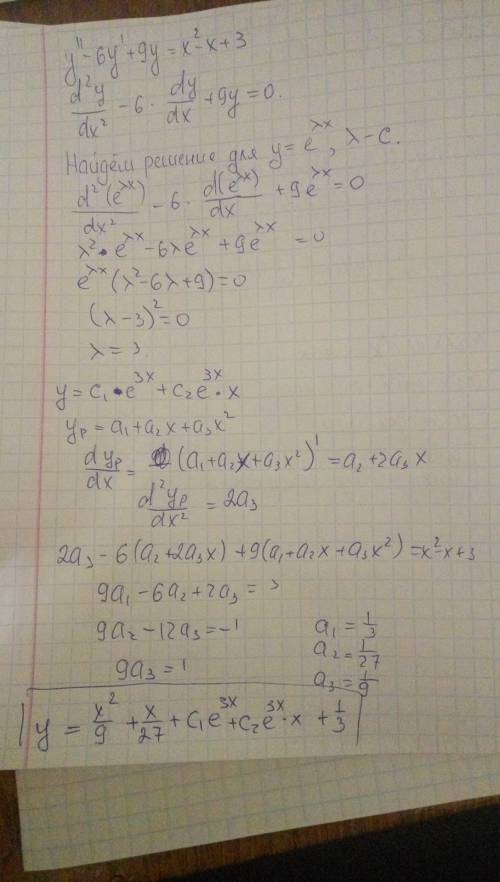 y'' - 6y' + 9y = x² - x + 3
d²y/dx² - 6 · dy/dx + 9y = 0.
Найдём решение для y = e^λx, λ - c.
d²(e^λx)/dx² - 6 · d(e^λx)/dx + 9e^λx = 0
λ² · e^λx - 6λe^λx + 9e^λx = 0
e^λx (λ² - 6λ + 9) = 0
(λ - 3)² = 0
λ = 3.
y = c₁ · e^3x + c₂e^3x · x
yₚ = a₁ + a₂x + a₃x²
dyₚ/dx = (a₁ + a₂x + a₃x²)' = a₂ + 2a₃x
d²yₚ/dx² = 2a₃
2a₃ - 6(a₂ + 2a₃x) + 9(a₁ + a₂x + a₃x²) = x² - x + 3
9a₁ - 6a₂ + 2a₃ = 3
9a₂ - 12a₃ = -1
9a₃ = 1
a₁ = 1/3
a₂ = 1/27
a₃ = 1/9
y = x²/9 + x/27 + c₁e^3x + c₂e^3x · x + 1/3